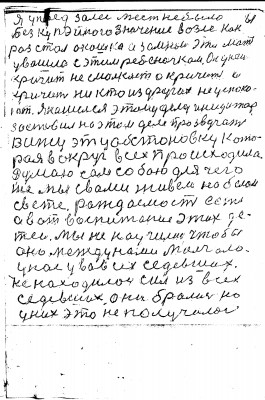 Я увидел зале мест не было
Без купэйного значения возле как
раз стол окошка а за мною эта мать
увашла с этим ребёночкам. Он у неи
кричит не сможет она кричит а
кричит ни кто из других не успоко
ит. Я нашелся этому делу
заставил на этом деле прозвучать
вижу эту обстоновку Кото-
рая вокруг всех происходила.
Думаю сам собою для чего
же мы с вами живем на белом
свете, рождаемость есть
а вот воспитание этих де-
тей. Мы не научили чтобы
оно между нами Молчало
у нас у вавсех седевших.
Не находилось сил из всех
седевших, они брались но
у них это не получалось